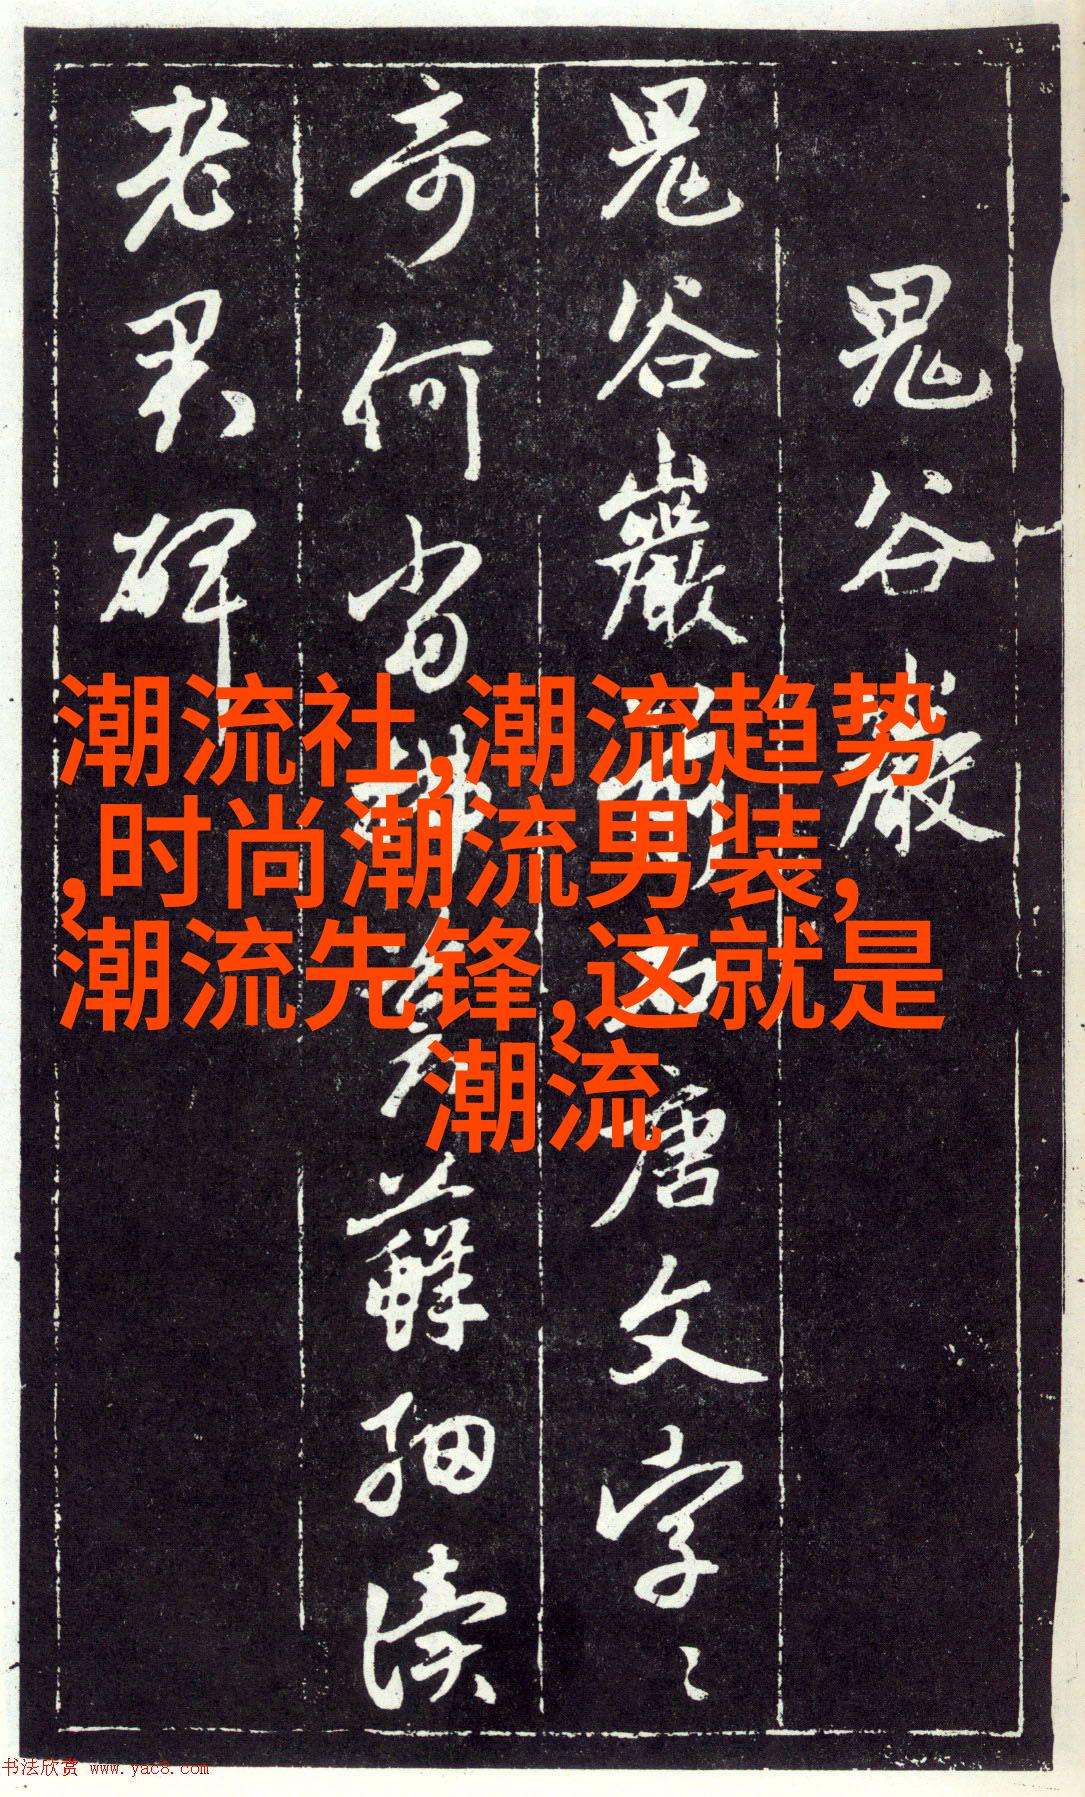 鬼谷巖
鬼谷巖前唐文字々
奇何當蘚細讀
老君碑
潮流社,潮流趋势
,时尚潮流男装,
潮流先锋,这就是
潮流
书法欣赏 www.yac8.com